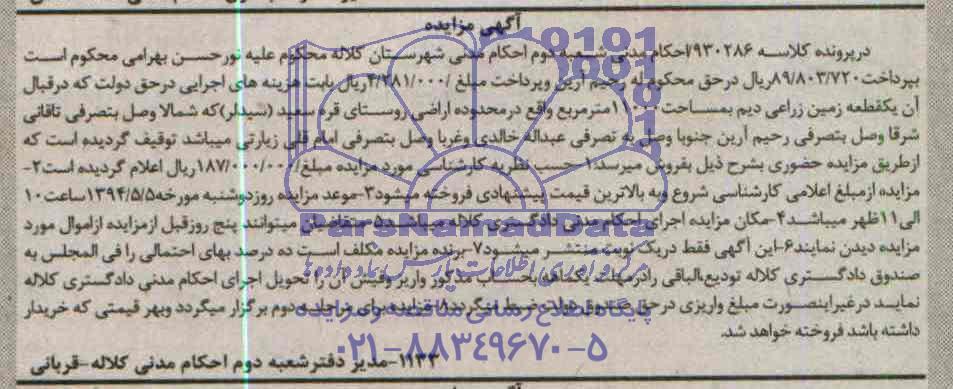 آگهی مزایده
درپرونده کلاسه ۹۳۰۲۸۶/احکام مدنی شعبه دوم احکام مدنی شهرستان کلاله محکوم علیه نورحسن بهرامی محکوم است
بپرداخت ۸۹/۸۰۳/۷۲۰ریال درحق محکوم له رحیم آرین وپرداخت مبلغ ۴/۲۸۱/۰۰۰ریال بابت هزینه های اجرایی درحق دولت که درقبال
آن یکقطعه زمین زراعی دیم بمساحت مترمربع واقع درمحدوده اراضی روستای قره سعید (شیدلر)که شمالا وصل بتصرفی تاقانی
شرقا وصل بتصرفی رحیم آرین جنوبا وصل به تصرفی عبداله خالدی وغربا وصل بتصرفی امام قلی زیارتی میباشد توقیف گردیده است که
ازطریق مزایده حضوری بشرح ذیل بفروش میرسد۱-حسب نظریه کارشناسی مورد مزایده مبلغ ۱۸۷/۰۰۰/۰۰۰ریال اعلام گردیده است۲-
مزایده ازمبلغ اعلامی کارشناسی شروع وبه بالاترین قیمت پیشنهادی فروخته میشود۳-موعد مزایده روزدوشنبه مورخه۱۳۹۴/۵/۵ساعت۱۰
الی۱۱ظهر میباشد۴-مکان مزایده اجرای احکام مدنی دادگستری کلاله میباشد۵-متقاضیان میتوانند پنج روزقبل ازمزایده ازاموال مورد
مزایده دیدن نمایند۶-این آگهی فقط دریک نوبت منتشر میشود۷-برنده مزایده مکلف است ده درصد بهای احتمالی را فی المجلس به
صندوق دادگستری کلاله تودیع الباقی رادرمهلت یکماهه بحساب مذکور واریز وفیش آن را تحویل اجرای احکام مدنی دادگستری کلاله
نماید درغیراینصورت مبلغ واریزی درحق صندوق دولت ضبط میگردد۸-مزایده برای مرحله دوم برگزار میگردد وبهر قیمتی که خریدار
داشته باشد فروخته خواهد شد.
۱۱۳۳-مدیر دفترشعبه دوم احکام مدنی کلاله-قربانی
ParsNamadData
پایگاه اطلاع رسانی مناقصه و مزایده
۰۲۱-۸۸۳۴۹۶۷۰-۵